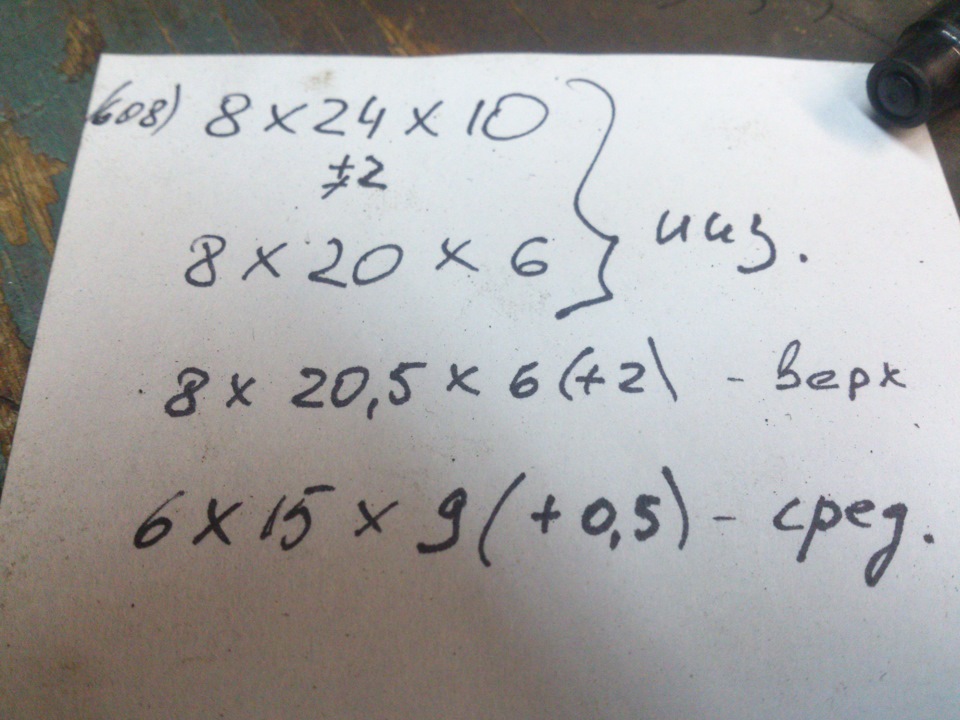 608) 8 x 24 x 10
±2
8 x 20 x 6 } низ.
8 x 20,5 x 6 (+2) - верх
6 x 15 x 9 (+0,5) - сред.